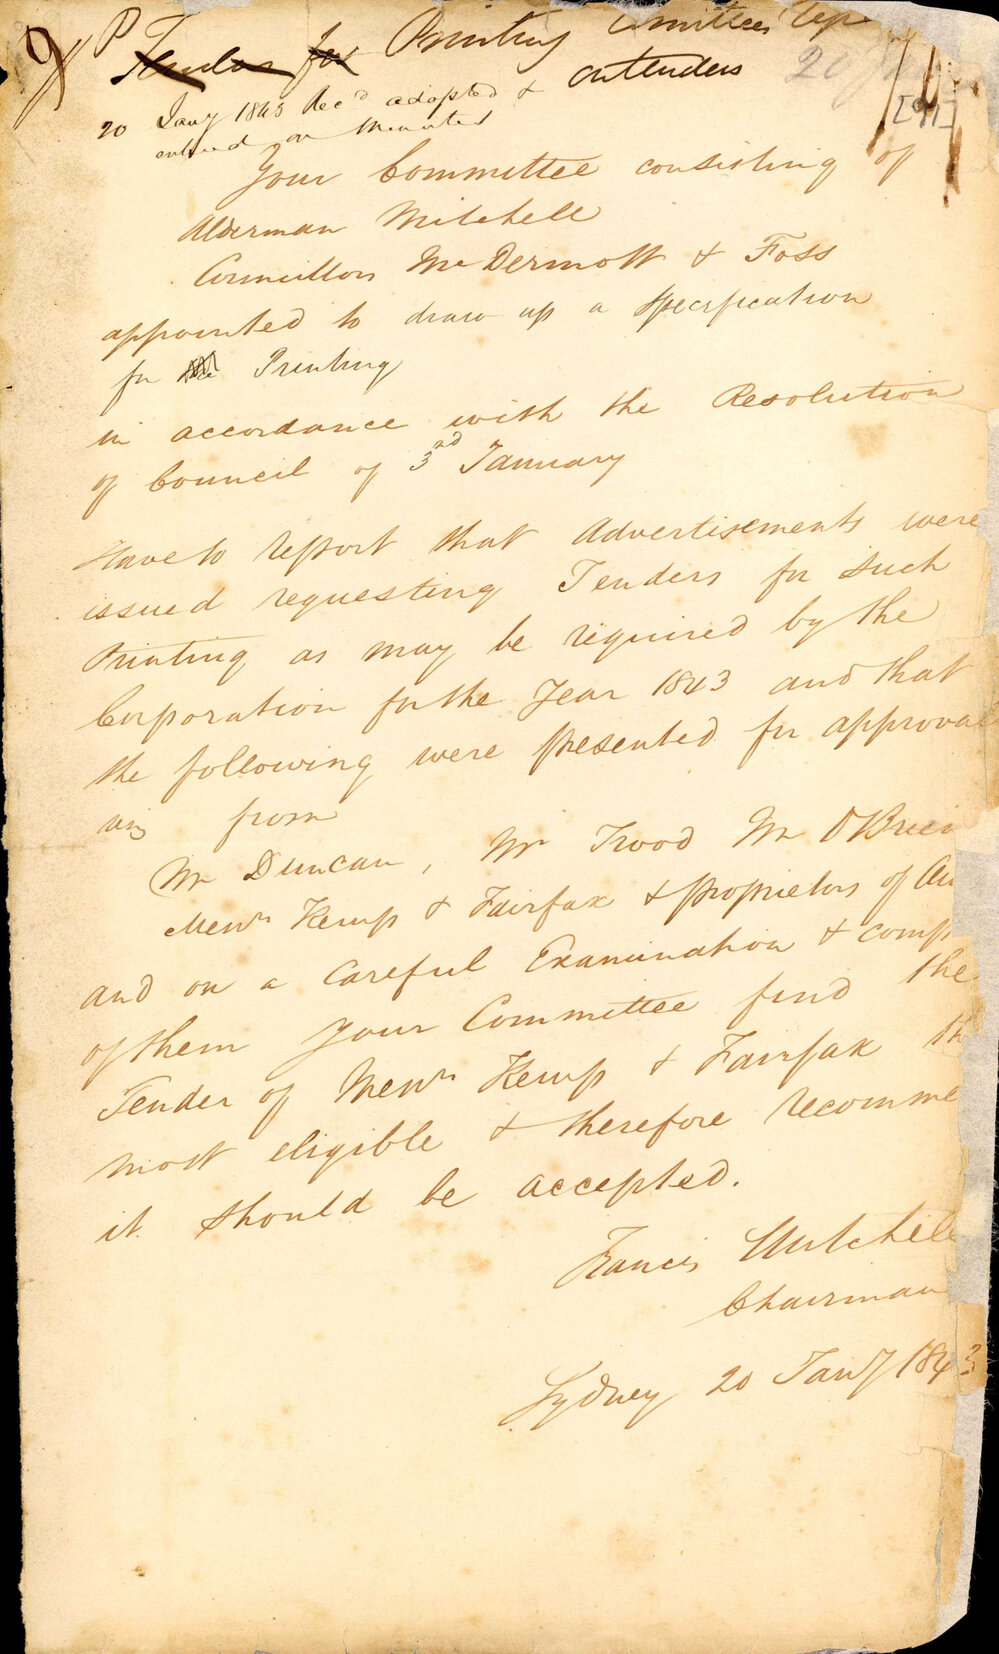 9
P Tender for Printing Committees Rep
on tenders 20 Ja
[91]
20 Jany 1843 Rec'd adopted &
entered on Minutes
Your Committee consisting of
Alderman Mitchell
Councillors McDermott & Foss
appointed to draw up a Specification
for Printing
in accordance with the Resolution
of Council of 3rd January
Have to report that Advertisements were
issued requesting Tenders for such
Printing as may be required by the
Corporation for the Year 1843 and that
the following were presented for approval
viz from
Mr Duncan, Mr Trood Mr O'Brien
Messrs Kemp & Fairfax & proprietors of Au
and on a Careful Examination & comp
of them Your Committee find the
Tender of Messrs Kemp & Fairfax th
most eligible & therefore recomme
it should be accepted.
Francis Mitchell
Chairman
Sydney 20 Jany 1843